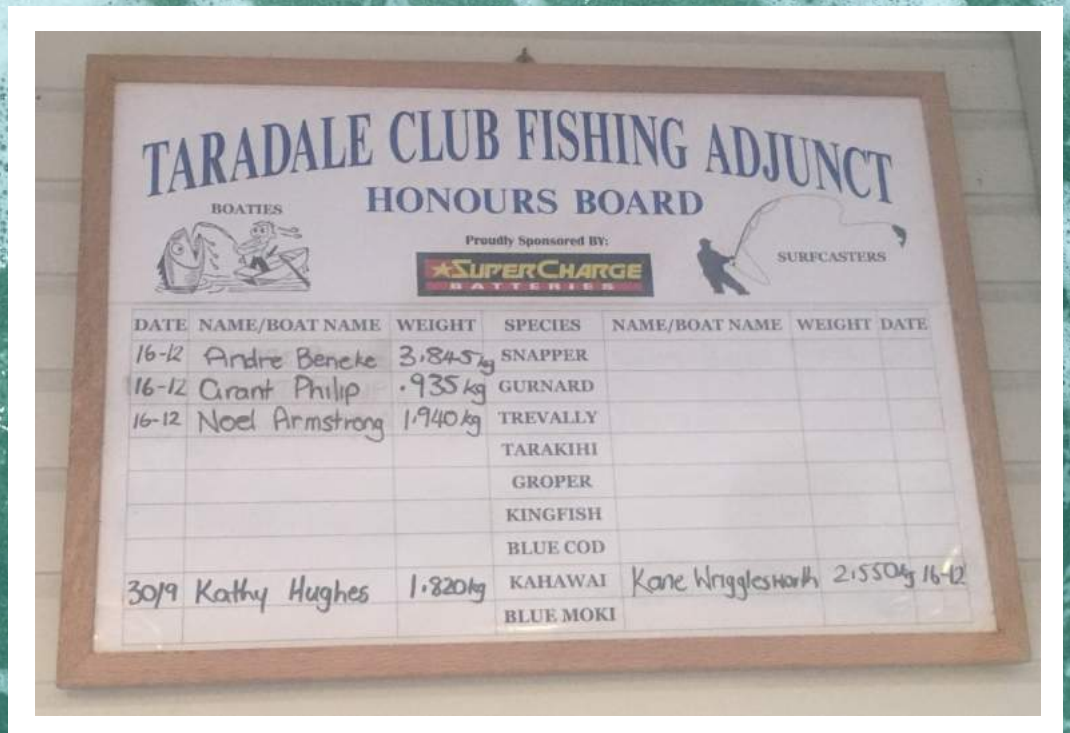 TARADALE CLUB FISHING ADJUNCT
HONOURS BOARD
BOATIES
Proudly Sponsored BY:
SURFCASTERS
SUPERCHARGE
BATTERIES
DATE NAME/BOAT NAME WEIGHT SPECIES NAME/BOAT NAME WEIGHT DATE
16-12 Andre Beneke 3.845kg SNAPPER
16-12 Grant Philip .935kg GURNARD
16-12 Noel Armstrong 1.940kg TREVALLY
TARAKIHI
GROPER
KINGFISH
BLUE COD
30/9 Kathy Hughes 1.820kg KAHAWAI Kane Wrigglesworth 2.550kg 16-12
BLUE MOKI